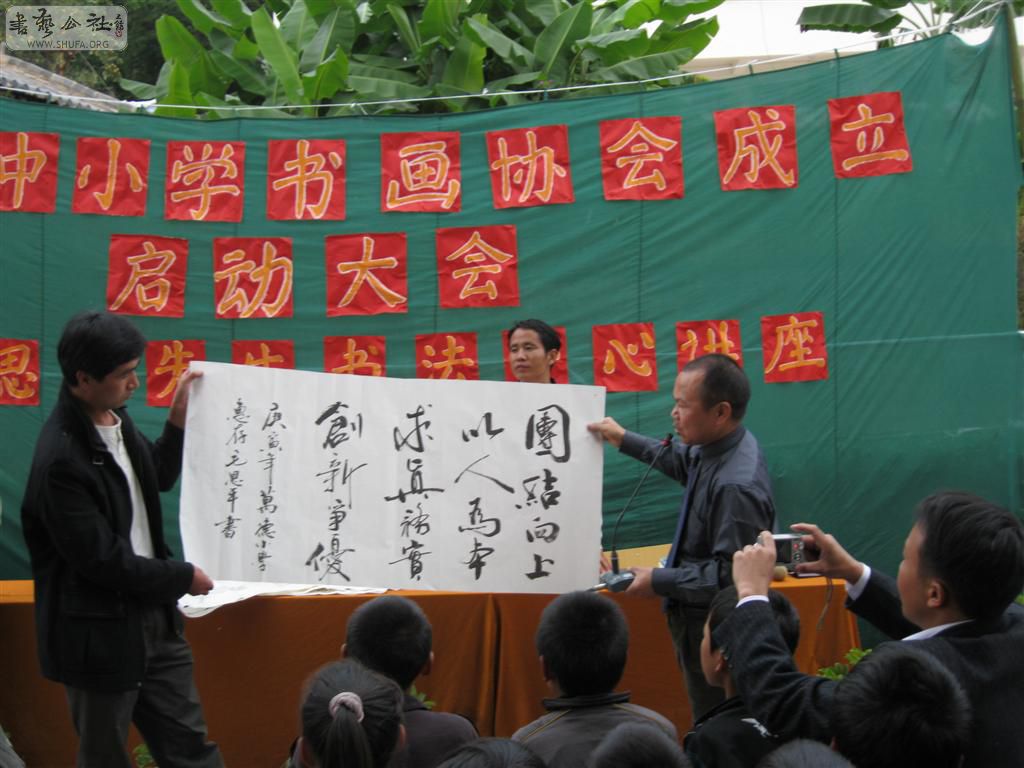 書藝公社
WWW.SHUFA.ORG
中小学书画协会成立
启动大会
思 先生书法 心讲座
團結向上
以人為本
求真務實
創新爭優
庚寅年萬德小學
惠存毛思平書